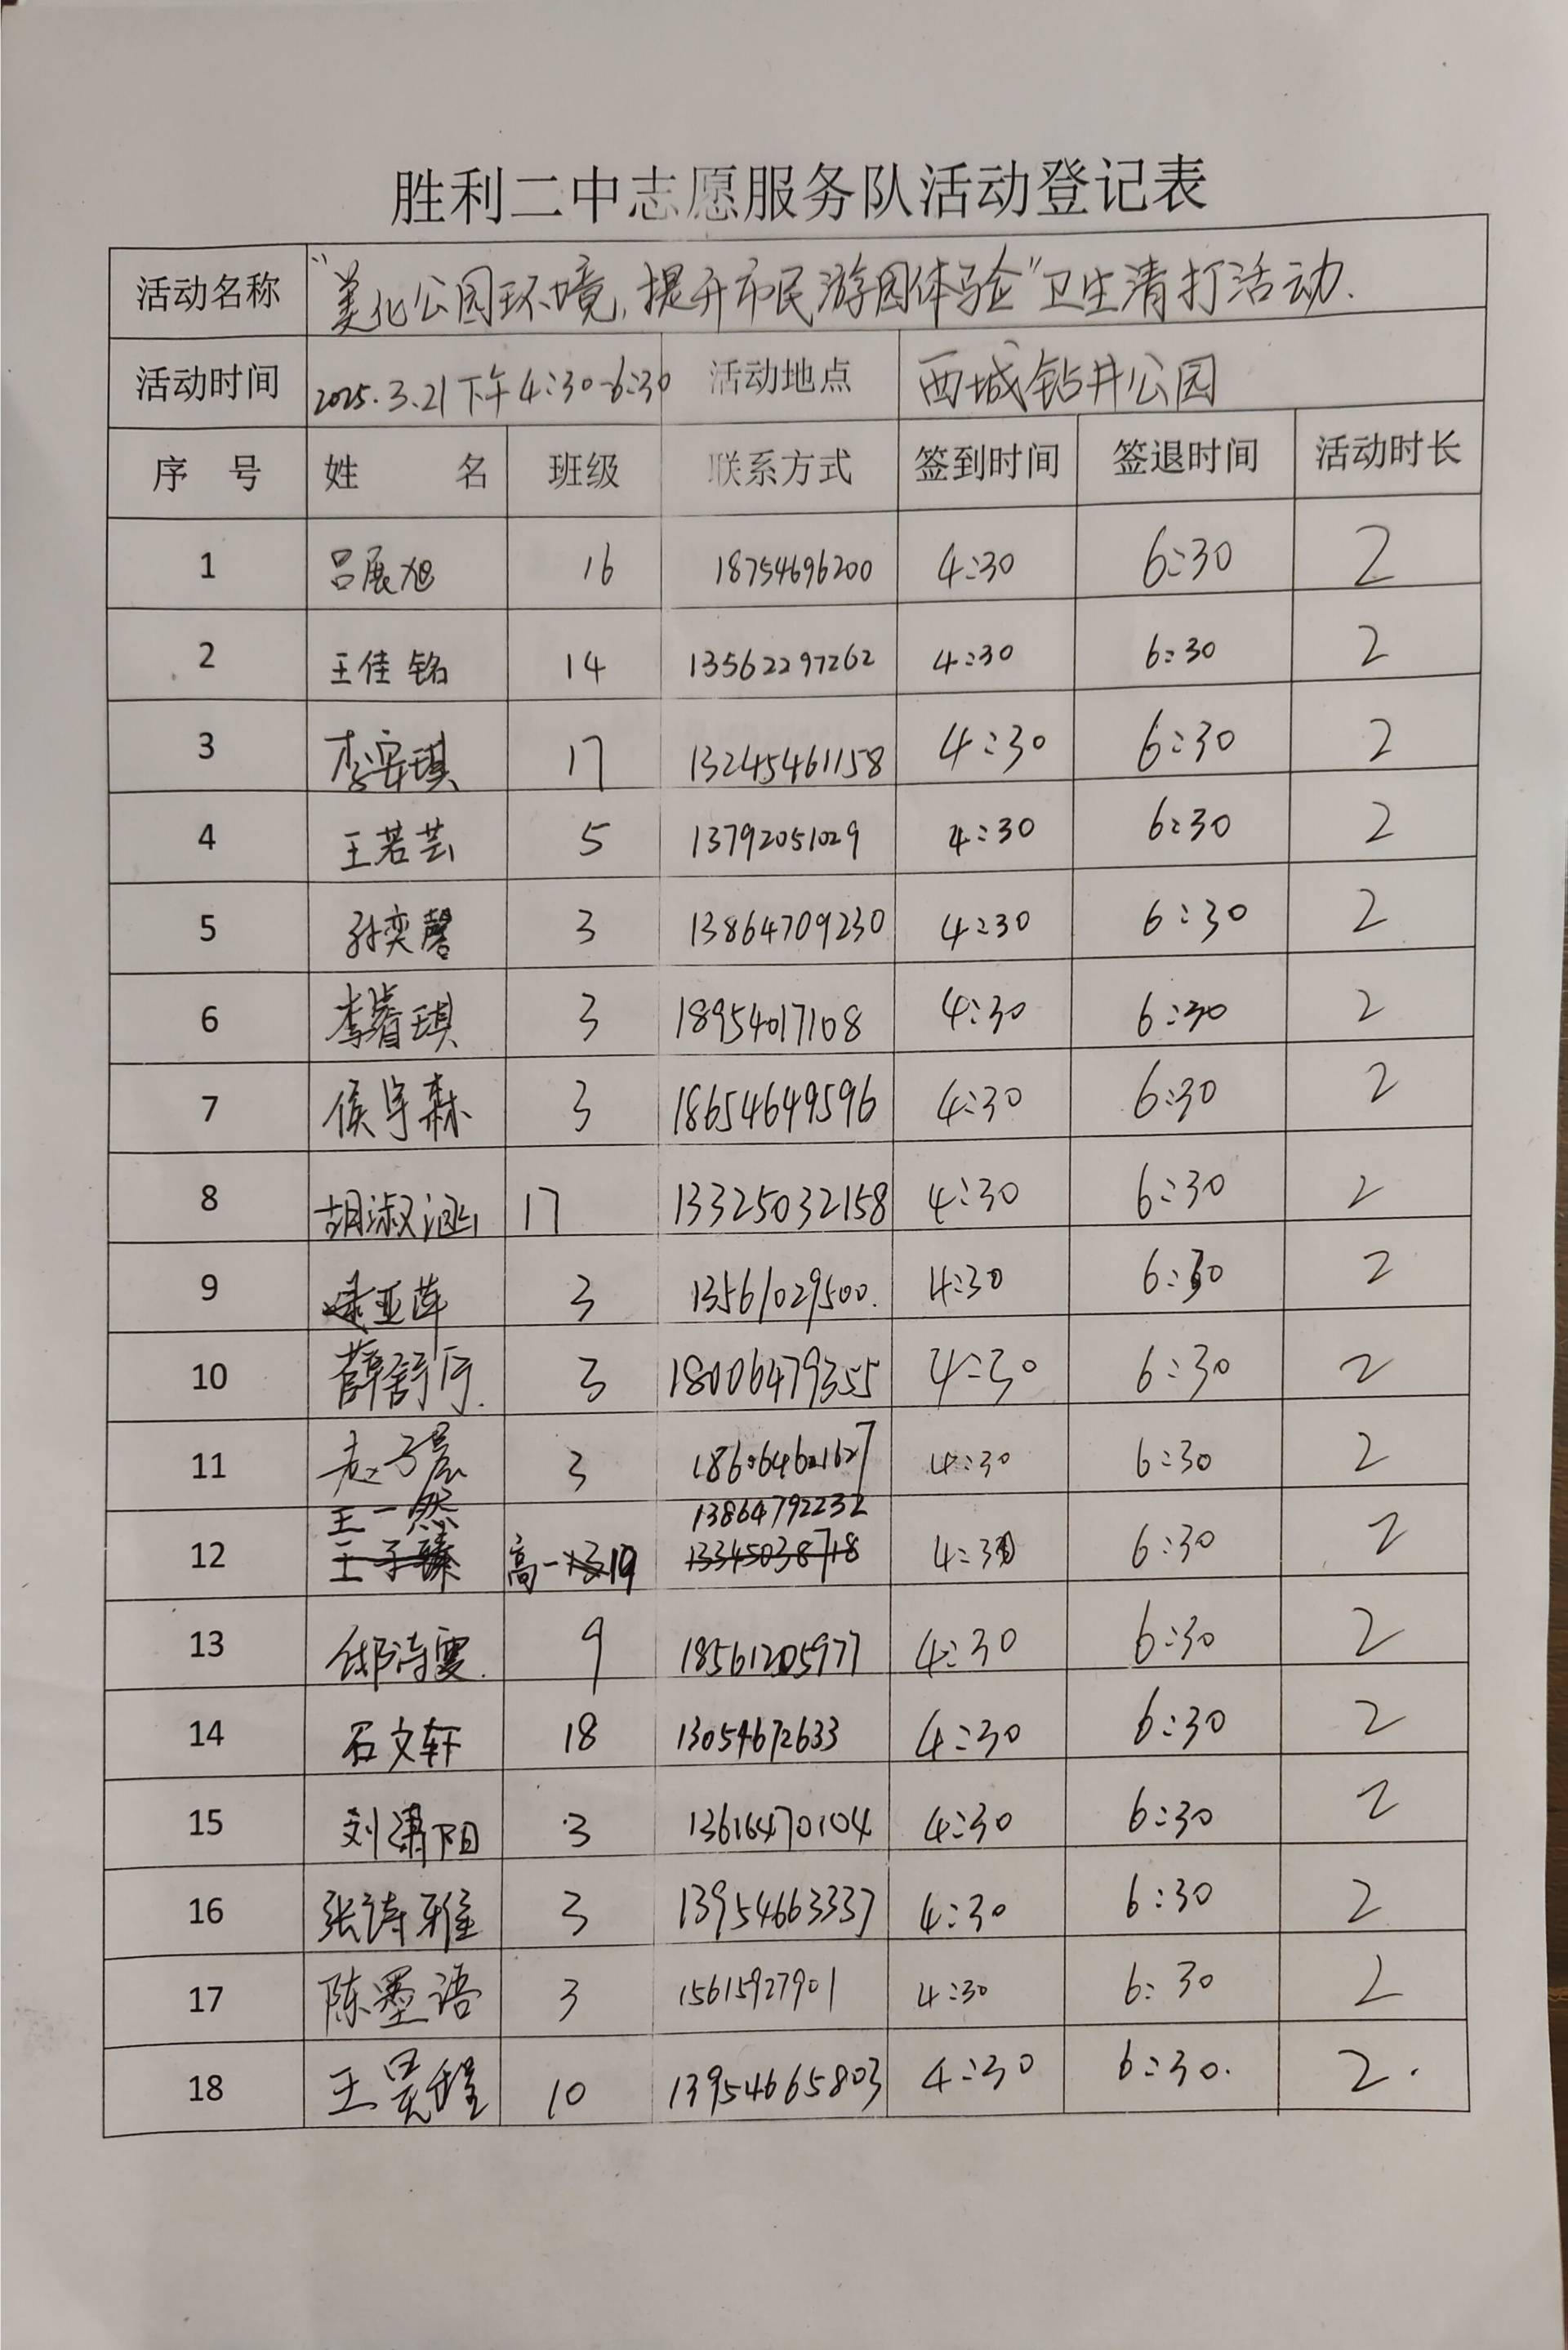 胜利二中志愿服务队活动登记表
活动名称 "美化公园环境,提升市民游园体验"卫生清打活动.
活动时间 2025.3.21下午4:30-6:30 活动地点 西城钻井公园
序 号 姓 名 班级 联系方式 签到时间 签退时间 活动时长
1 吕展旭 16 18754696200 4:30 6:30 2
2 王佳铭 14 13562297262 4:30 6:30 2
3 李安琪 17 13245461158 4:30 6:30 2
4 王若芸 5 13792051029 4:30 6:30 2
5 孙奕馨 3 13864709230 4:30 6:30 2
6 李睿琪 3 18954017108 4:30 6:30 2
7 侯宇森 3 18654649596 4:30 6:30 2
8 胡淑涵 17 13325032158 4:30 6:30 2
9 亚萍 3 13561029500. 4:30 6:30 2
10 薛舒 3 18006479355 4:30 6:30 2
11 赵子晨 3 4:30 6:30 2
王一然 13864792232
12 王子臻 高一19 13345038718 4:30 6:30 2
13 邰诗雯. 9 18561205977 4:30 6:30 2
14 石文轩 18 13054672633 4:30 6:30 2
15 刘潇阳 3 13616470104 4:30 6:30 2
16 张诗雅 3 13954663337 4:30 6:30 2
17 陈墨语 3 15615927901 4:30 6:30 2
18 王昊程 10 13954665803 4:30 6:30. 2.